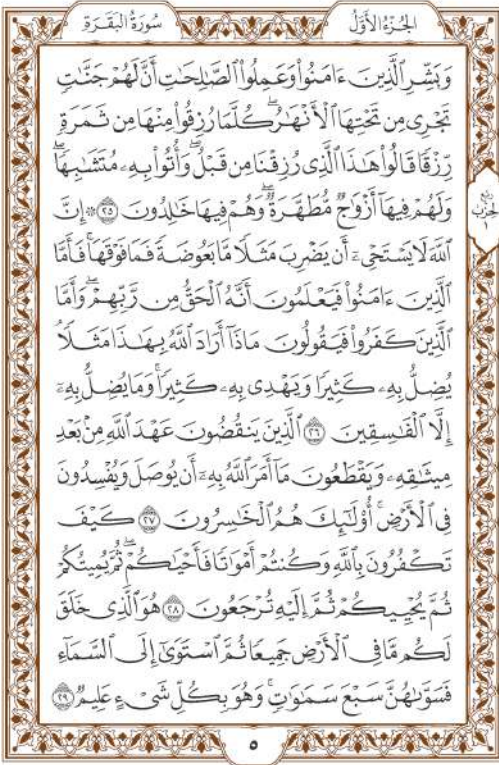 سُورَةُ البَقَرَةِ
الجُزْءُ الأَوَّلُ
وَبَشِّرِ ٱلَّذِينَ ءَامَنُوا۟ وَعَمِلُوا۟ ٱلصَّٰلِحَٰتِ أَنَّ لَهُمْ جَنَّٰتٍ
تَجْرِى مِن تَحْتِهَا ٱلْأَنْهَٰرُ ۖ كُلَّمَا رُزِقُوا۟ مِنْهَا مِن ثَمَرَةٍ
رِّزْقًا قَالُوا۟ هَٰذَا ٱلَّذِى رُزِقْنَا مِن قَبْلُ ۖ وَأُتُوا۟ بِهِۦ مُتَشَٰبِهًا ۖ
وَلَهُمْ فِيهَآ أَزْوَٰجٌ مُّطَهَّرَةٌ ۖ وَهُمْ فِيهَا خَٰلِدُونَ ٢٥ ۞ إِنَّ
ٱللَّهَ لَا يَسْتَحْىِۦٓ أَن يَضْرِبَ مَثَلًا مَّا بَعُوضَةً فَمَا فَوْقَهَا ۚ فَأَمَّا
ٱلَّذِينَ ءَامَنُوا۟ فَيَعْلَمُونَ أَنَّهُ ٱلْحَقُّ مِن رَّبِّهِمْ ۖ وَأَمَّا
ٱلَّذِينَ كَفَرُوا۟ فَيَقُولُونَ مَاذَآ أَرَادَ ٱللَّهُ بِهَٰذَا مَثَلًا ۘ
يُضِلُّ بِهِۦ كَثِيرًا وَيَهْدِى بِهِۦ كَثِيرًا ۚ وَمَا يُضِلُّ بِهِۦٓ
إِلَّا ٱلْفَٰسِقِينَ ٢٦ ٱلَّذِينَ يَنقُضُونَ عَهْدَ ٱللَّهِ مِنۢ بَعْدِ
مِيثَٰقِهِۦ وَيَقْطَعُونَ مَآ أَمَرَ ٱللَّهُ بِهِۦٓ أَن يُوصَلَ وَيُفْسِدُونَ
فِى ٱلْأَرْضِ ۚ أُو۟لَٰٓئِكَ هُمُ ٱلْخَٰسِرُونَ ٢٧ كَيْفَ
تَكْفُرُونَ بِٱللَّهِ وَكُنتُمْ أَمْوَٰتًا فَأَحْيَٰكُمْ ۖ ثُمَّ يُمِيتُكُمْ
ثُمَّ يُحْيِيكُمْ ثُمَّ إِلَيْهِ تُرْجَعُونَ ٢٨ هُوَ ٱلَّذِى خَلَقَ
لَكُم مَّا فِى ٱلْأَرْضِ جَمِيعًا ثُمَّ ٱسْتَوَىٰٓ إِلَى ٱلسَّمَآءِ
فَسَوَّىٰهُنَّ سَبْعَ سَمَٰوَٰتٍ ۚ وَهُوَ بِكُلِّ شَىْءٍ عَلِيمٌ ٢٩
ربع
الحزب
١
٥